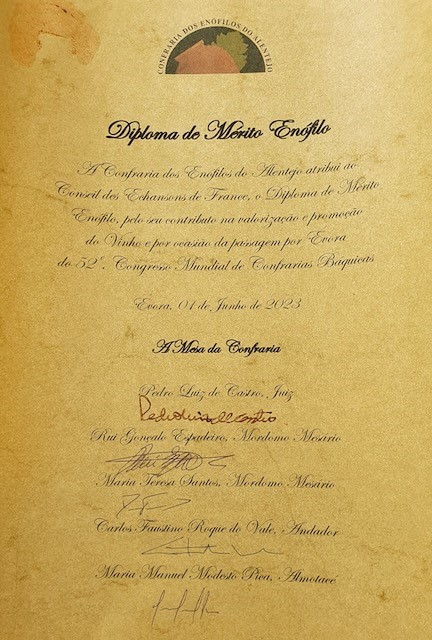 CONFRARIA DOS ENÓFILOS DO ALENTEJO
Diploma de Mérito Enófilo
A Confraria dos Enófilos do Alentejo atribui ao
Conseil des Echansons de France, o Diploma de Mérito
Enófilo, pelo seu contributo na valorização e promoção
do Vinho e por ocasião da passagem por Évora
do 52º. Congresso Mundial de Confrarias Báquicas
Évora, 01 de Junho de 2023
A Mesa da Confraria
Pedro Luiz de Castro, Juiz
Pedro Luiz de Castro
Rui Gonçalo Espadeiro, Mordomo Mesário
Maria Teresa Santos, Mordomo Mesário
Carlos Faustino Roque do Vale, Andador
Maria Manuel Modesto Pica, Almotacé